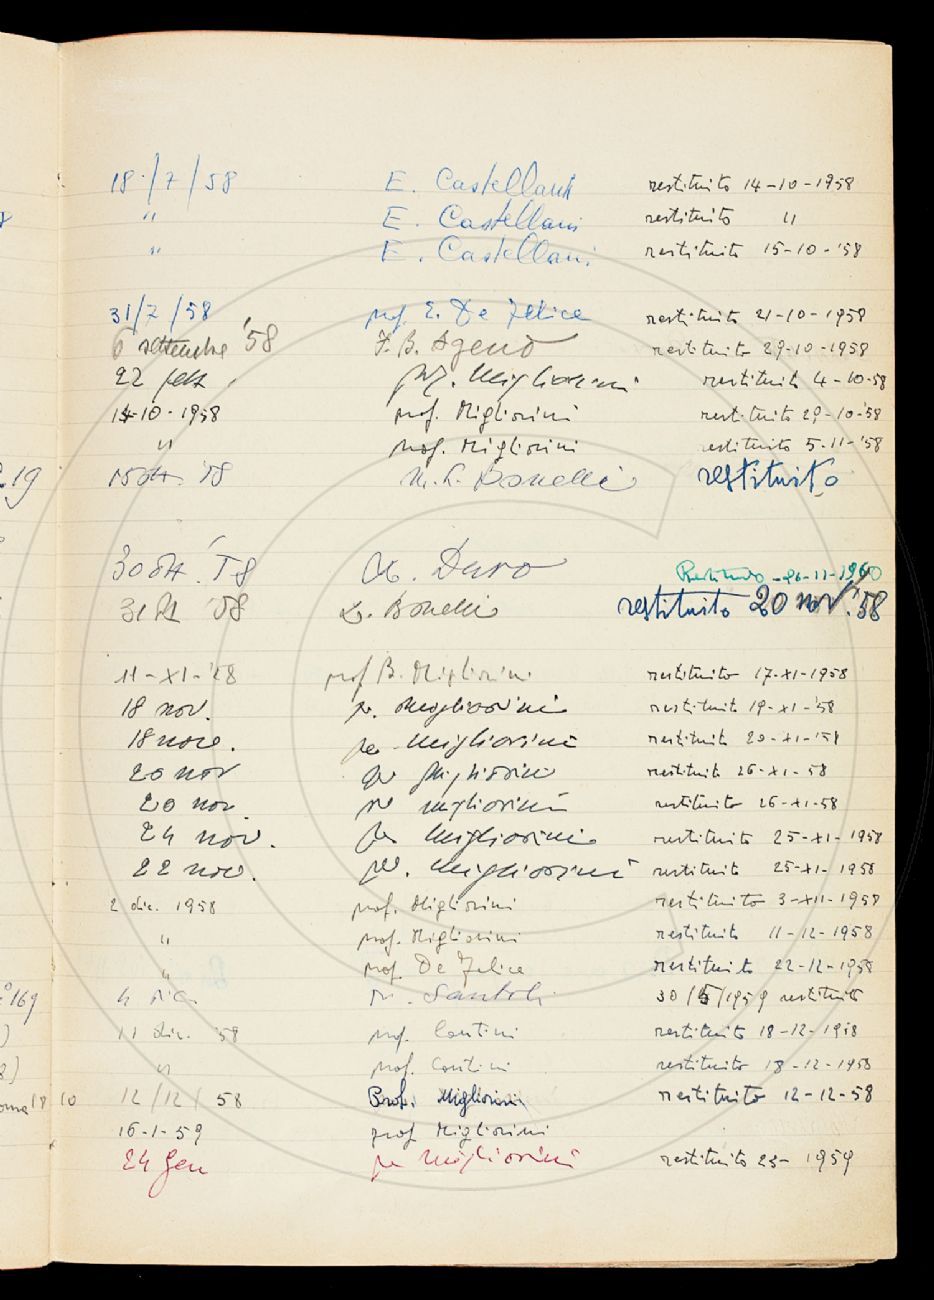 18/7/58 E. Castellani restituito 14-10-1958
" E. Castellani restituito "
" E. Castellani restituito 15-10-'58
31/7/58 prof. E. De Felice restituito 21-10-1958
6 settembre '58 F. B. Ageno restituito 29-10-1958
22 prof. Migliorini restituito 4-10-58
14-10-1958 prof. Migliorini restituito 29-10-'58
" prof. Migliorini restituito 5-11-'58
219 15 ott. '58 M. L. Bonelli restituito
30 ott. '58 Duro Restituito -26-11-1960
31 '58 Bonelli restituito 20 nov. '58
11-XI-'58 prof B. Migliorini restituito 17-XI-1958
18 nov. Migliorini restituito 19-XI-'58
18 nov. Migliorini restituito 20-XI-'58
20 nov Migliorini restituito 26-XI-58
20 nov. Migliorini restituito 26-XI-58
24 nov. Migliorini restituito 25-XI-1958
22 nov. Migliorini restituito 25-XI-1958
2 dic. 1958 prof. Migliorini restituito 3-XII-1958
" prof. Migliorini restituito 11-12-1958
" prof. De Felice restituito 22-12-1958
169 4 dic. Santoli 30/5/1959 restituito
11 dic. '58 prof. Contini restituito 18-12-1958
" prof. Contini restituito 18-12-1958
18 10 12/12/58 Prof. Migliorini restituito 12-12-58
16-1-59 prof Migliorini
24 gen Migliorini restituito 23- 1959